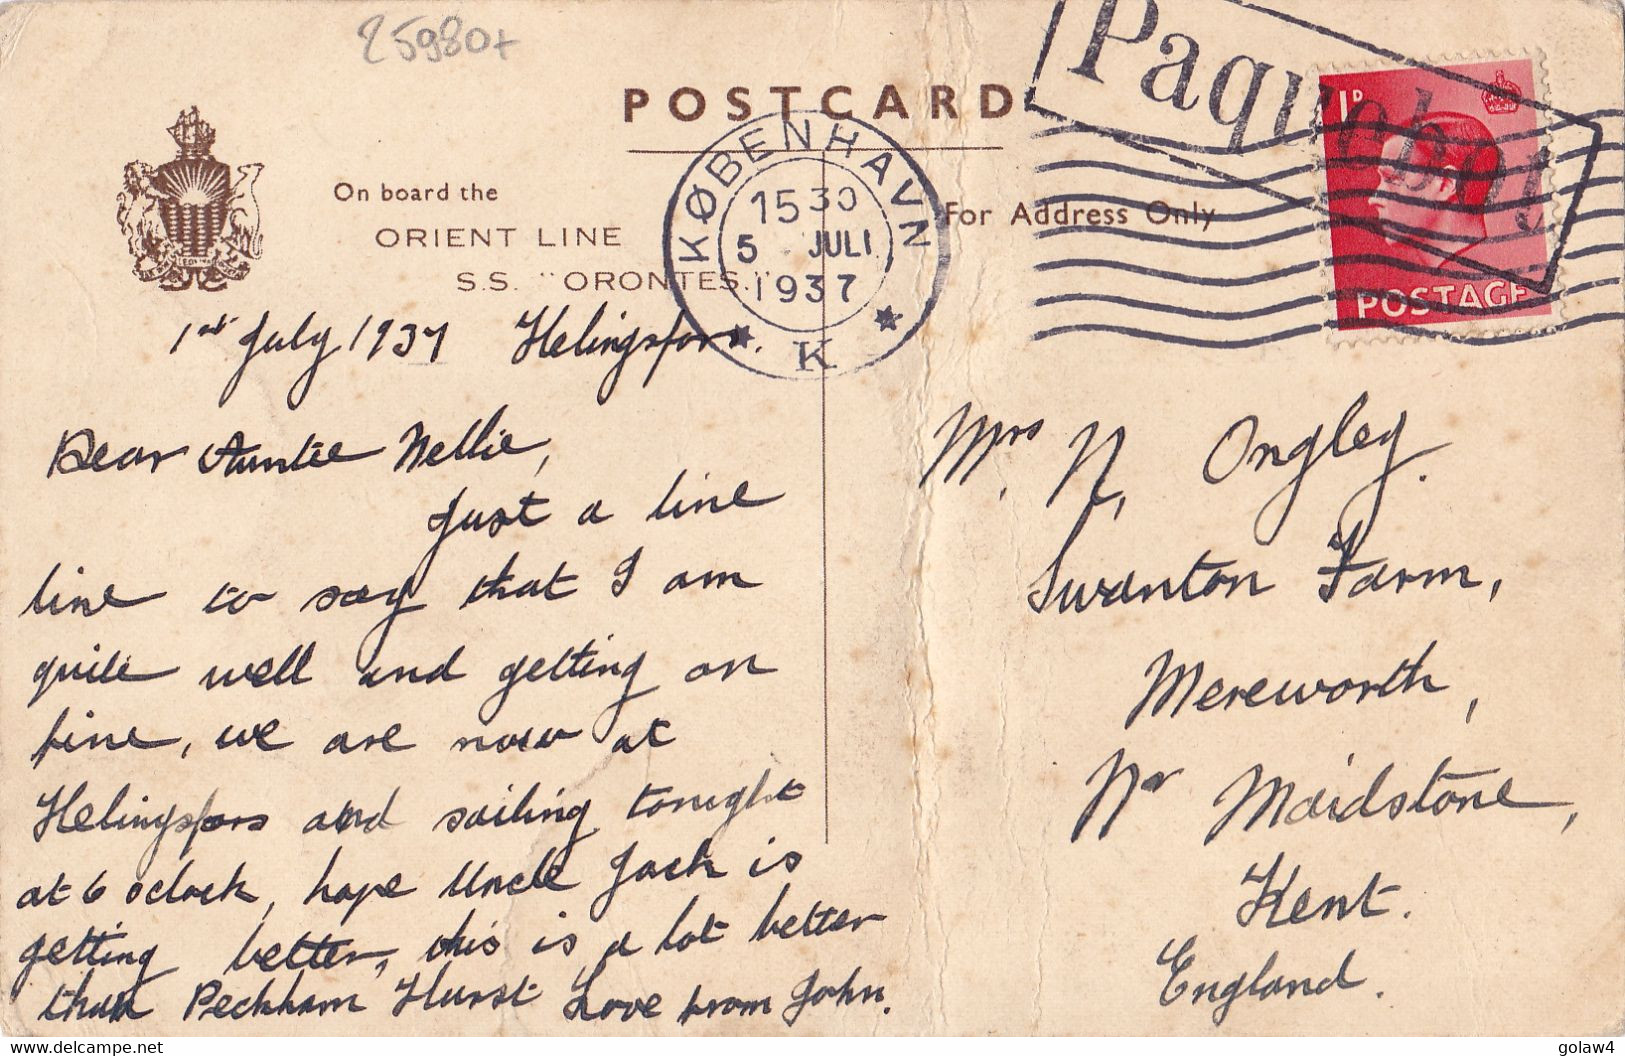 25980+
POSTCARD
On board the
ORIENT LINE
S.S. "ORONTES."
For Address Only
KØBENHAVN
1530
5 JULI
1937
K
Paquebot
1D
POSTAGE
1st July 1937 Helingsfors.
Dear Auntie Nellie,
Just a line
line to say that I am
quite well and getting on
fine, we are now at
Helingsfors and sailing tonight
at 6 oclock, hope Uncle Jack is
getting better, this is a lot better
than Peckham Hurst Love from John.
Mrs N. Ongley.
Swanton Farm,
Mereworth,
Nr Maidstone,
Kent.
England.
www.delcampe.net
golaw4